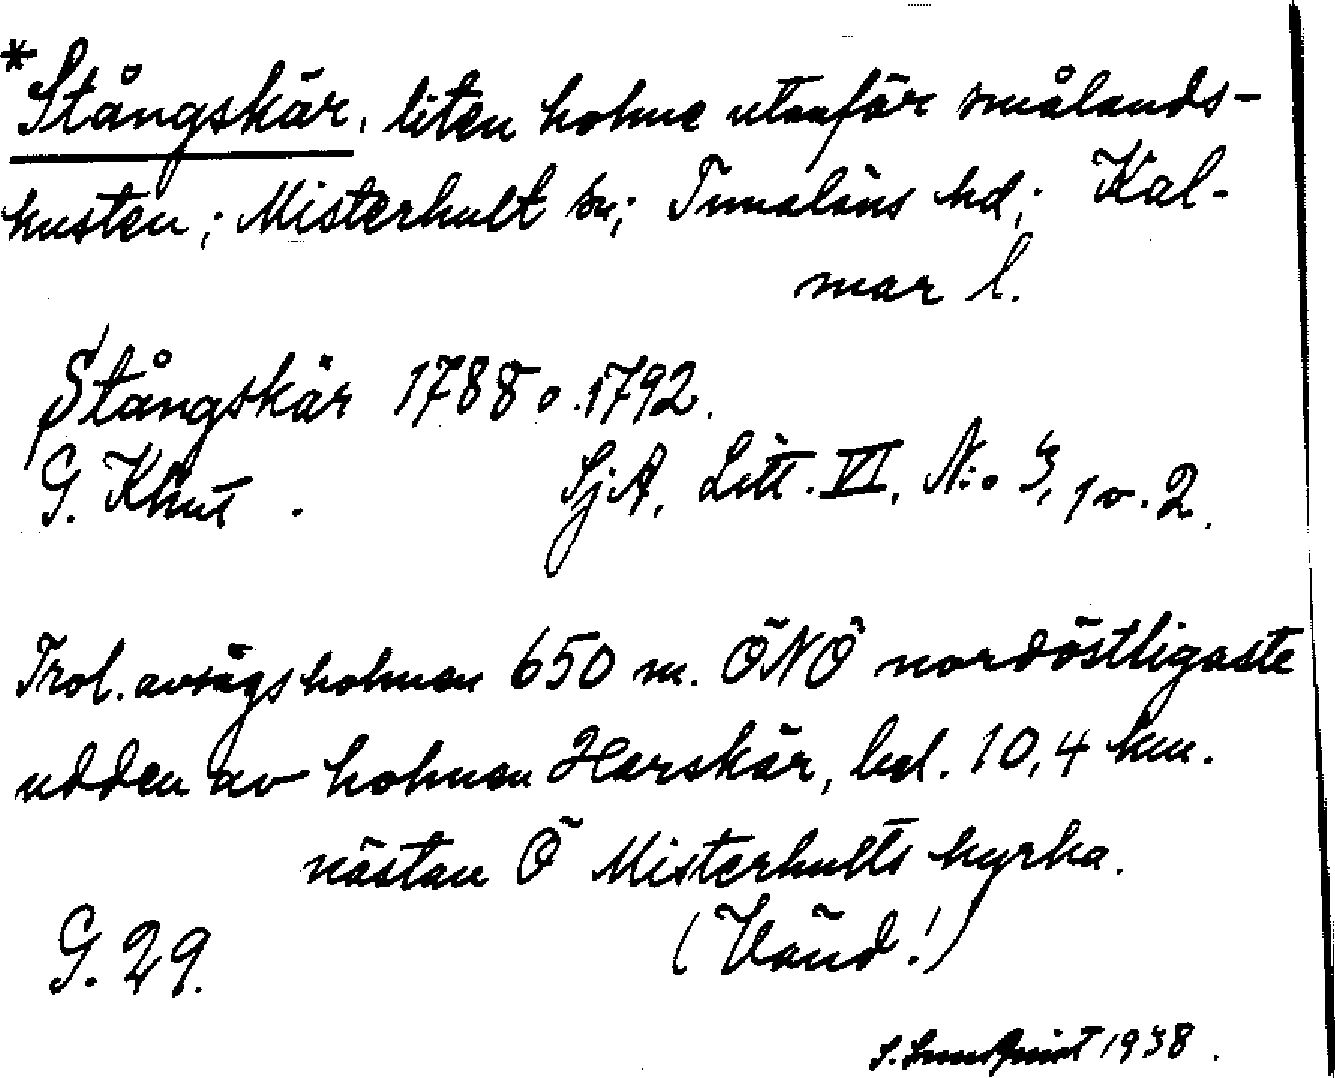 *Stångskär, liten holme utanför smålands-
kusten; Misterhult sn; Tunaläns hd; Kal-
mar l.
Stångskär 1788 o. 1792.
G. Klint. SjA, Litt. VI, N:o 3, 1 o. 2.
Trol. avsågs holmen 650 m. ÖNÖ nordöstligaste
udden av holmen Harskär, bel. 10,4 km.
nästan Ö Misterhults kyrka.
G. 29. (Vänd!)
S. 1938.